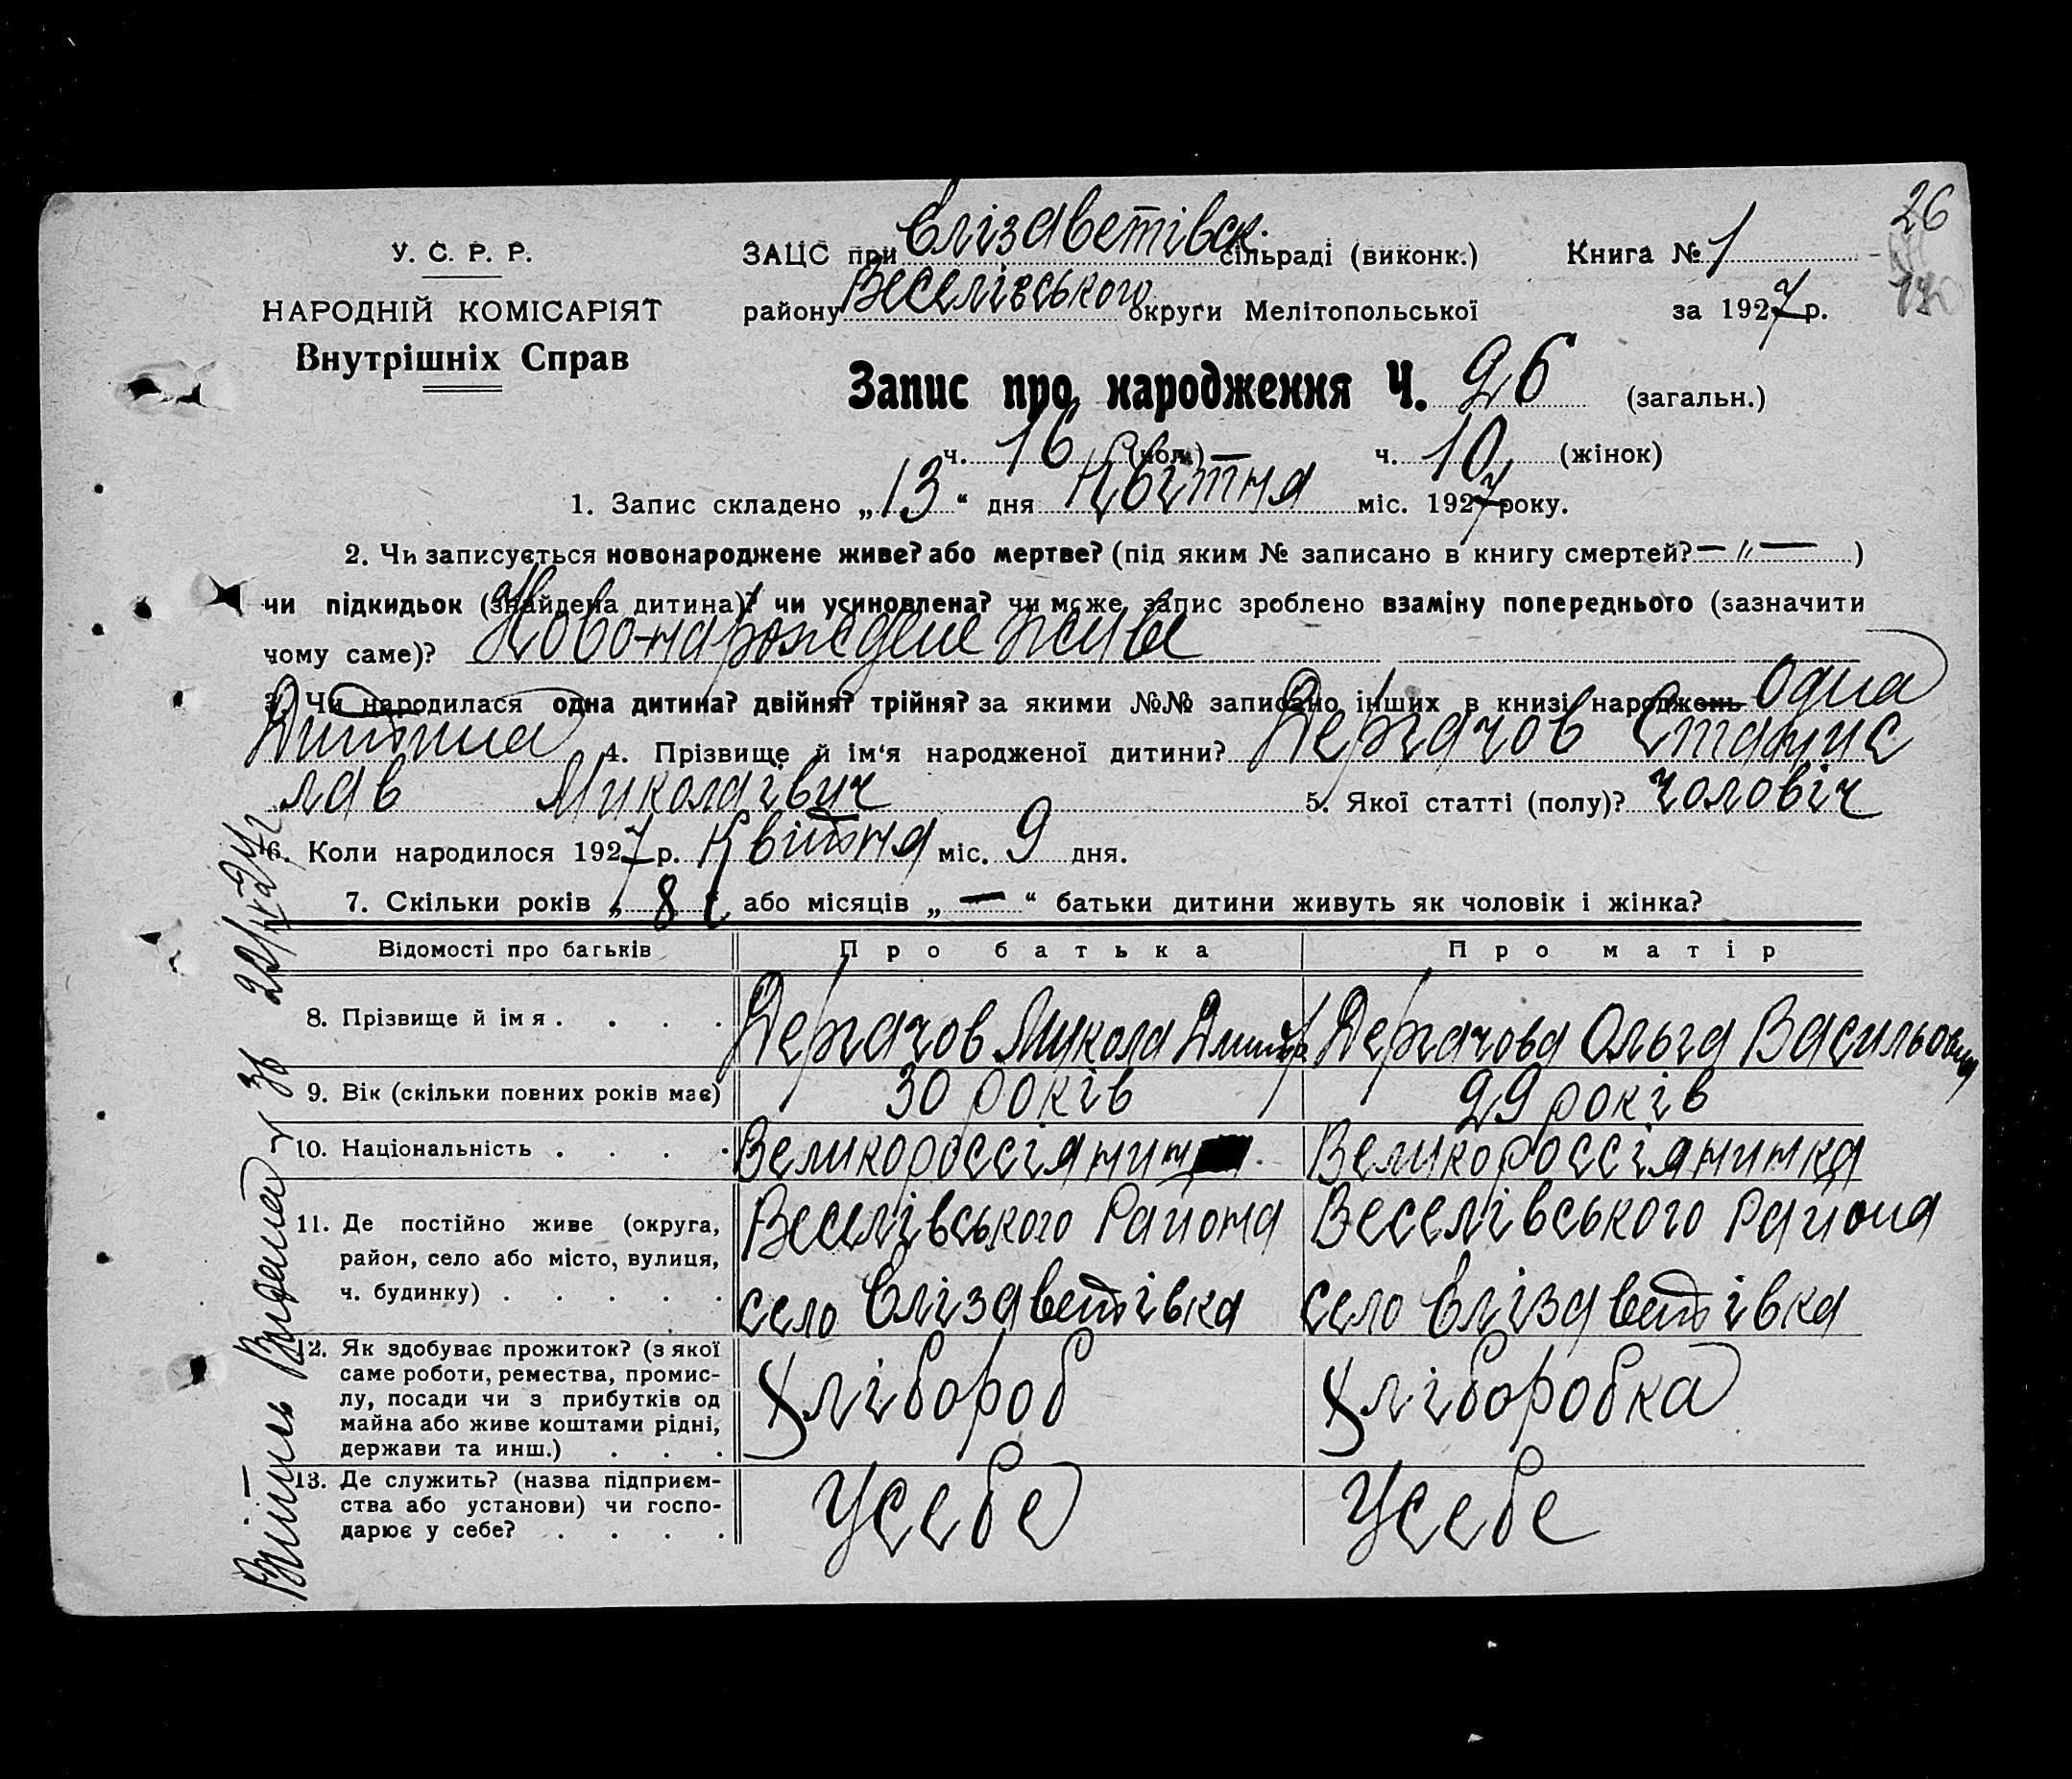 26
У. С. Р. Р.
НАРОДНІЙ КОМІСАРІЯТ
Внутрішніх Справ
ЗАЦС при Єлізаветівск. сільраді (виконк.) Книга № 1
району Веселівського округи Мелітопольської за 1927 р.
Запис про народження Ч. 26 (загальн.)
ч. 16 (чол.) — ч. 10 (жінок)
1. Запис складено „13“ дня Квітня міс. 1927 року.
2. Чи записується новонароджене живе? або мертве? (під яким № записано в книгу смертей? — „ — )
чи підкидьок (знайдена дитина)? чи усиновлена? чи може запис зроблено взаміну попереднього (зазначити
чому саме)? Ново-нарожедене живе
3. Чи народилася одна дитина? двійня? трійня? за якими №№ записано інших в книзі народжень Одна
Дитина 4. Прізвище й ім‘я народженої дитини? Дергачов Станис
лав Миколаівич 5. Якої статті (полу)? чоловіч
6. Коли народилося 1927 р. Квітня міс. 9 дня.
7. Скільки років „ 8 “ або місяців „ — “ батьки дитини живуть як чоловік і жінка?
Відомості про батьків Про батька Про матір
8. Прізвище й імя . . . . Дергачов Микола Дмитр Дергачова Ольга Васильовна
9. Вік (скільки повних років має) 30 років 29 років
10. Національність . . . . Великороссіянин Великороссіянинка
11. Де постійно живе (округа, Веселівського Района Веселівського Района
район, село або місто, вулиця,
ч. будинку) . . . . . село Єлізаветівка село Єлізаветівка
12. Як здобуває прожиток? (з якої
саме роботи, ремества, промис-
лу, посади чи з прибутків од Хлібороб Хліборобка
майна або живе коштами рідні,
держави та инш.) . . .
13. Де служить? (назва підприєм-
ства або установи) чи госпо- Усебе Усебе
дарює у себе? . . . .